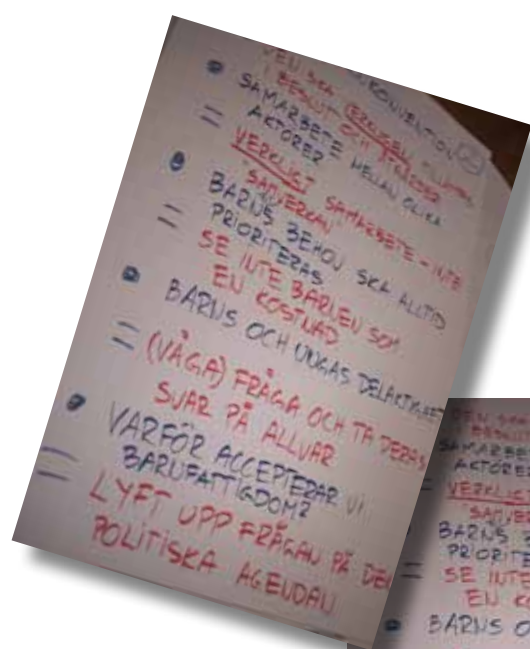 KONVENTION
DEN SKA VERKLIGEN
BESLUT OCH ÅTGÄRDER
SAMARBETE MELLAN OLIKA
AKTÖRER
= VERKLIGT SAMARBETE - INTE
SAMVERKAN
BARNS BEHOV SKA ALLTID
PRIORITERAS
= SE INTE BARNEN SOM
EN KOSTNAD
BARNS OCH UNGAS DELAKTIGHET
= (VÅGA) FRÅGA OCH TA DERAS
SVAR PÅ ALLVAR
VARFÖR ACCEPTERAR VI
BARNFATTIGDOM?
= LYFT UPP FRÅGAN PÅ DEN
POLITISKA AGENDAN
DEN SKA
BESLUT
SAMARBE
AKTÖRER
VERKLIGT
SAMVER
BARNS B
PRIORITE
= SE INTE
EN KO
BARNS O